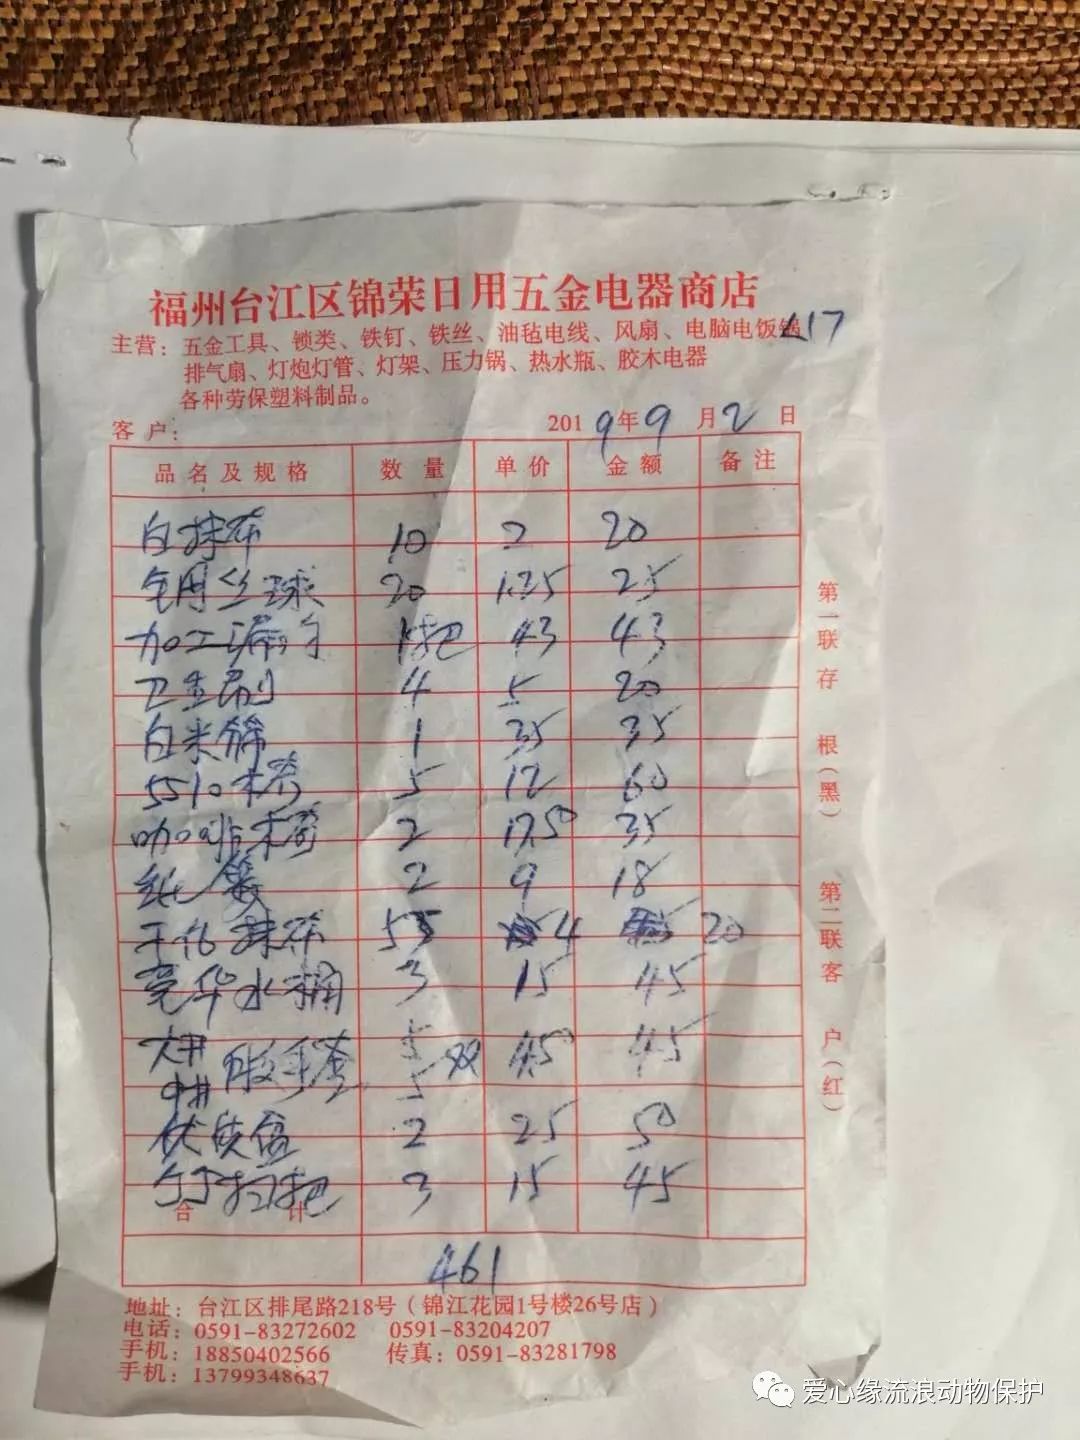 福州台江区锦荣日用五金电器商店
主营：五金工具、锁类、铁钉、铁丝、油毡电线、风扇、电脑电饭锅
117
排气扇、灯炮灯管、灯架、压力锅、热水瓶、胶木电器
各种劳保塑料制品。
客户： 2019年9月2日
品名及规格 数量 单价 金额 备注
白抹布 10 2 20
钢丝球 20 1.25 25
加工漏 1把 43 43
卫生刷 4 5 20
白米筛 1 35 35
5510 5 12 60
咖啡 2 17.50 35
纸篓 2 9 18
抹布 5 4 20
豪华水桶 3 15 45
大 5
中 手套 5 双 4.50 45
2 25 50
竹扫把 3 15 45
合计
461
第一联存根（黑）
第二联客户（红）
地址：台江区排尾路218号（锦江花园1号楼26号店）
电话：0591-83272602 0591-83204207
手机：18850402566 传真：0591-83281798
手机：13799348637
爱心缘流浪动物保护